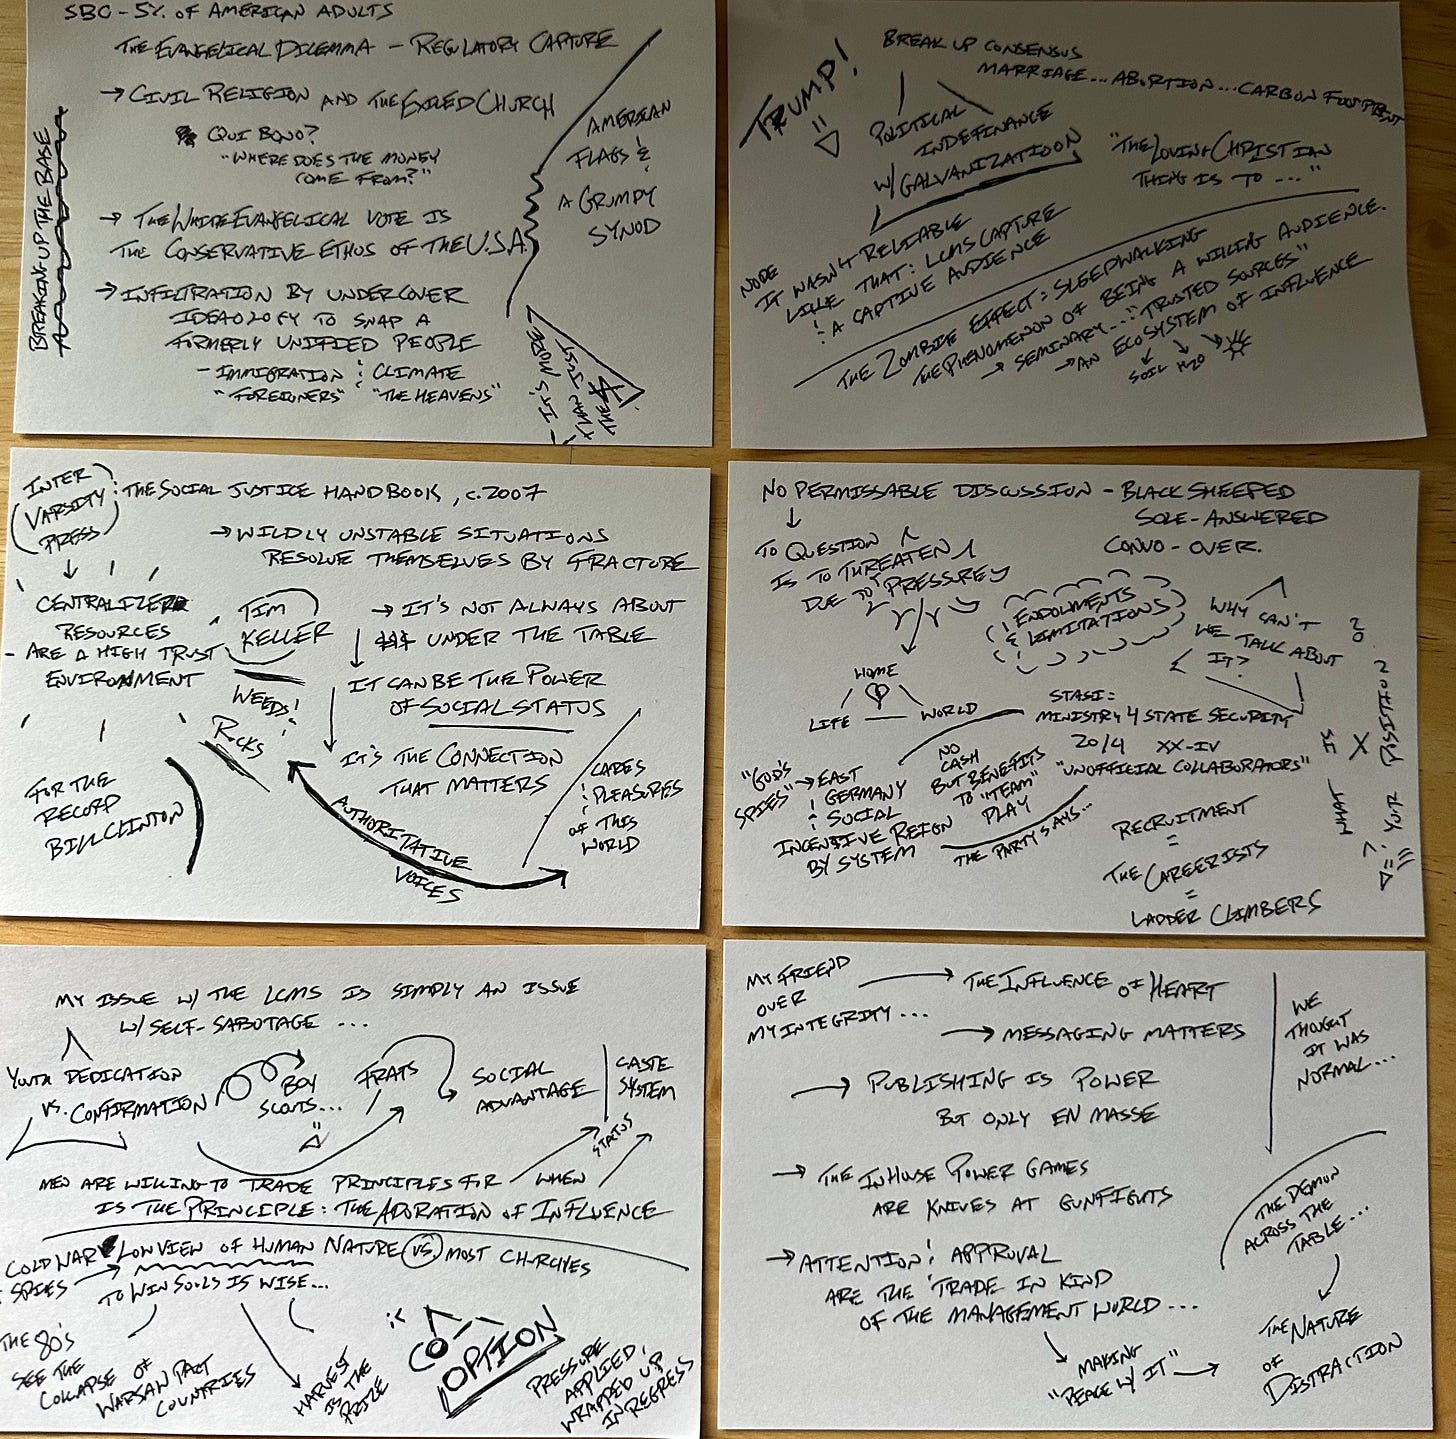 SBC - 5% OF AMERICAN ADULTS
THE EVANGELICAL DILEMMA - REGULATORY CAPTURE
→ CIVIL RELIGION AND THE EXILED CHURCH
QUI BONO?
"WHERE DOES THE MONEY
COME FROM?"
→ THE WHITE EVANGELICAL VOTE IS
THE CONSERVATIVE ETHOS OF THE U.S.A.
→ INFILTRATION BY UNDERCOVER
IDEAOLOGY TO SNAP A
FORMERLY UNIFIED PEOPLE
- IMMIGRATION : CLIMATE
"FOREIGNERS" "THE HEAVENS"
BREAKING UP THE BASE
AMERICAN
FLAGS &
A GRUMPY
SYNOD
- IT'S MORE
THAN JUST
THE $
TRUMP!
BREAK UP CONSENSUS
MARRIAGE... ABORTION... CARBON FOOTPRINT
POLITICAL
INDEFINANCE
W/ GALVANIZATIOON
"THE LOVING CHRISTIAN
THING IS TO ..."
NODE
IT WASN'T RELIABLE
LIKE THAT: LCMS CAPTURE
: A CAPTIVE AUDIENCE
THE ZOMBIE EFFECT: SLEEPWALKING
THE PHENOMENON OF BEING A WILLING AUDIENCE.
→ SEMINARY... "TRUSTED SOURCES"
→ AN ECOSYSTEM OF INFLUENCE
SOIL H2O
INTER
VARSITY
PRESS
: THE SOCIAL JUSTICE HANDBOOK, c. 2007
→ WILDLY UNSTABLE SITUATIONS
RESOLVE THEMSELVES BY FRACTURE
CENTRALIZED
RESOURCES
- ARE A HIGH TRUST
ENVIRONMENT
TIM
KELLER
WEEDS!
ROCKS
→ IT'S NOT ALWAYS ABOUT
$$$ UNDER THE TABLE
IT CAN BE THE POWER
OF SOCIAL STATUS
IT'S THE CONNECTION
THAT MATTERS
FOR THE
RECORD
BILL CLINTON
AUTHORITATIVE
VOICES
CARES
: PLEASURES
OF THIS
WORLD
NO PERMISSABLE DISCUSSION - BLACK SHEEPED
SOLE-ANSWERED
CONVO - OVER.
TO QUESTION
IS TO THREATEN
DUE TO PRESSURE
ENDOLMENTS
& LIMITATIONS
WHY CAN'T
WE TALK ABOUT
IT?
HOME
LIFE — WORLD
STASI:
MINISTRY 4 STATE SECURITY
20/4 XX-IV
"UNOFFICIAL COLLABORATORS"
"GOD'S
SPIES"
→ EAST
GERMANY
: SOCIAL
INCENTIVE REIGN
BY SYSTEM
NO
CASH
BUT BENEFITS
TO "TEAM"
PLAY
THE PARTY SAYS...
RECRUITMENT
=
THE CAREERISTS
=
LADDER CLIMBERS
SO
WHAT IS
X
YOUR POSITION?
MY ISSUE W/ THE LCMS IS SIMPLY AN ISSUE
W/ SELF-SABOTAGE ...
YOUTH DEDICATION
VS. CONFIRMATION
BOY
SCOUTS...
FRATS
SOCIAL
ADVANTAGE
CASTE
SYSTEM
STATUS
MEN ARE WILLING TO TRADE PRINCIPLES FOR WHEN
IS THE PRINCIPLE: THE ADORATION OF INFLUENCE
COLD WAR
SPIES
LOW VIEW OF HUMAN NATURE VS. MOST CHURCHES
TO WIN SOULS IS WISE...
THE 80'S
SEE THE
COLLAPSE OF
WARSAW PACT
COUNTRIES
HARVEST
IS THE
PRIZE
CO-
OPTION
PRESSURE
APPLIED,
WRAPPED UP
IN REGRESS
MY FRIEND
OVER
MY INTEGRITY...
→ THE INFLUENCE OF HEART
→ MESSAGING MATTERS
→ PUBLISHING IS POWER
BUT ONLY EN MASSE
→ THE INHOUSE POWER GAMES
ARE KNIVES AT GUNFIGHTS
→ ATTENTION : APPROVAL
ARE THE TRADE IN KIND
OF THE MANAGEMENT WORLD...
MAKING
"PEACE W/ IT"
WE
THOUGHT
IT WAS
NORMAL...
THE DEMON
ACROSS THE
TABLE...
THE NATURE
OF
DISTRACTION